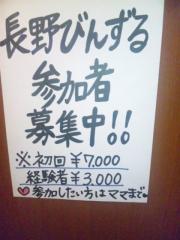 長野びんずる
参加者
募集中!!
※初回¥7,000
経験者¥3,000
♥参加したい方はママまで